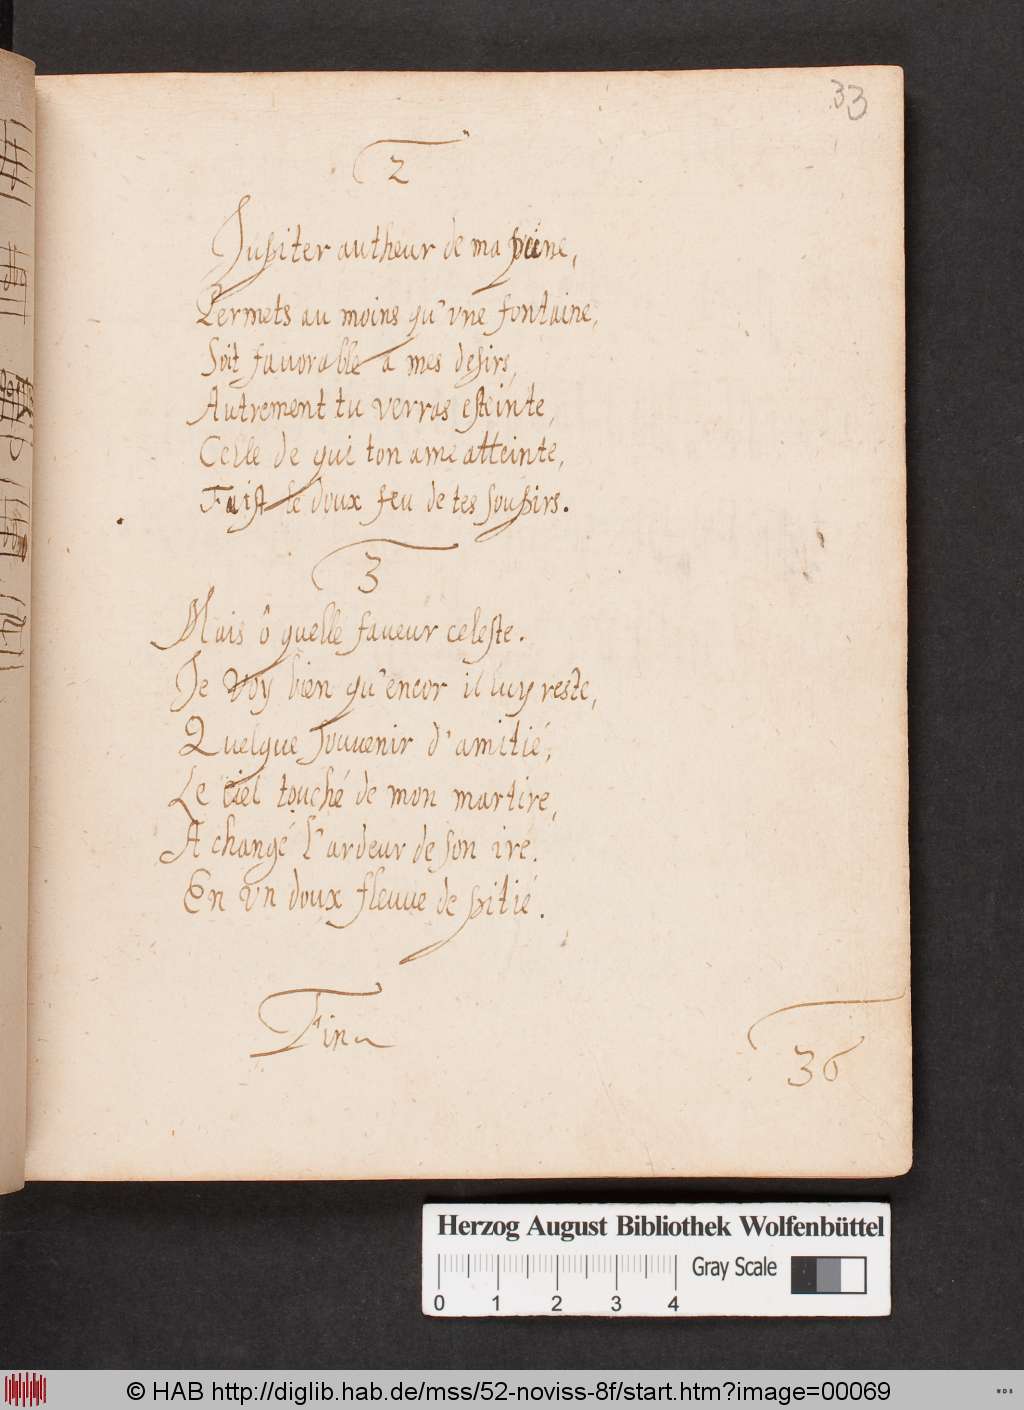 33
2
Jupiter autheur de ma peine,
Permets au moins qu'vne fontaine,
Soit fauorable a mes desirs,
Autrement tu verras esteinte,
Celle de qui ton ame atteinte,
Faist le doux feu de tes soupirs.
3
Mais ô quelle faueur celeste.
Je voy bien qu'encor il luy reste,
Quelque souuenir d'amitié,
Le ciel touché de mon martire,
A changé l'ardeur de son ire.
En vn doux fleuue de pitié.
Fin
36
Herzog August Bibliothek Wolfenbüttel
Gray Scale
0 1 2 3 4
© HAB http://diglib.hab.de/mss/52-noviss-8f/start.htm?image=00069